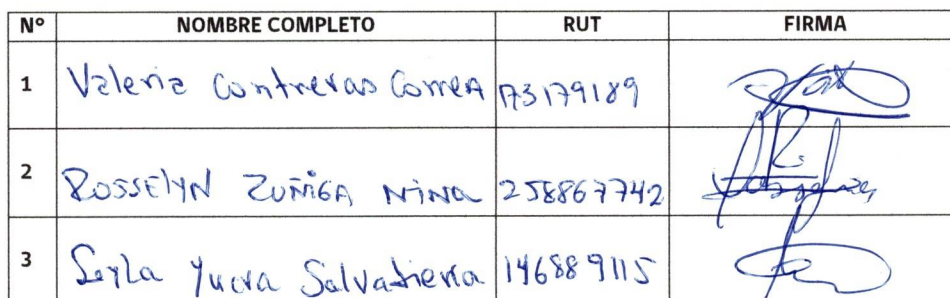 N° NOMBRE COMPLETO RUT FIRMA
1 Valeria Contreras Correa 173179189
2 ROSSELYN ZUÑIGA NINA 258867742
3 Leyla Yucra Salvatierra 146889115